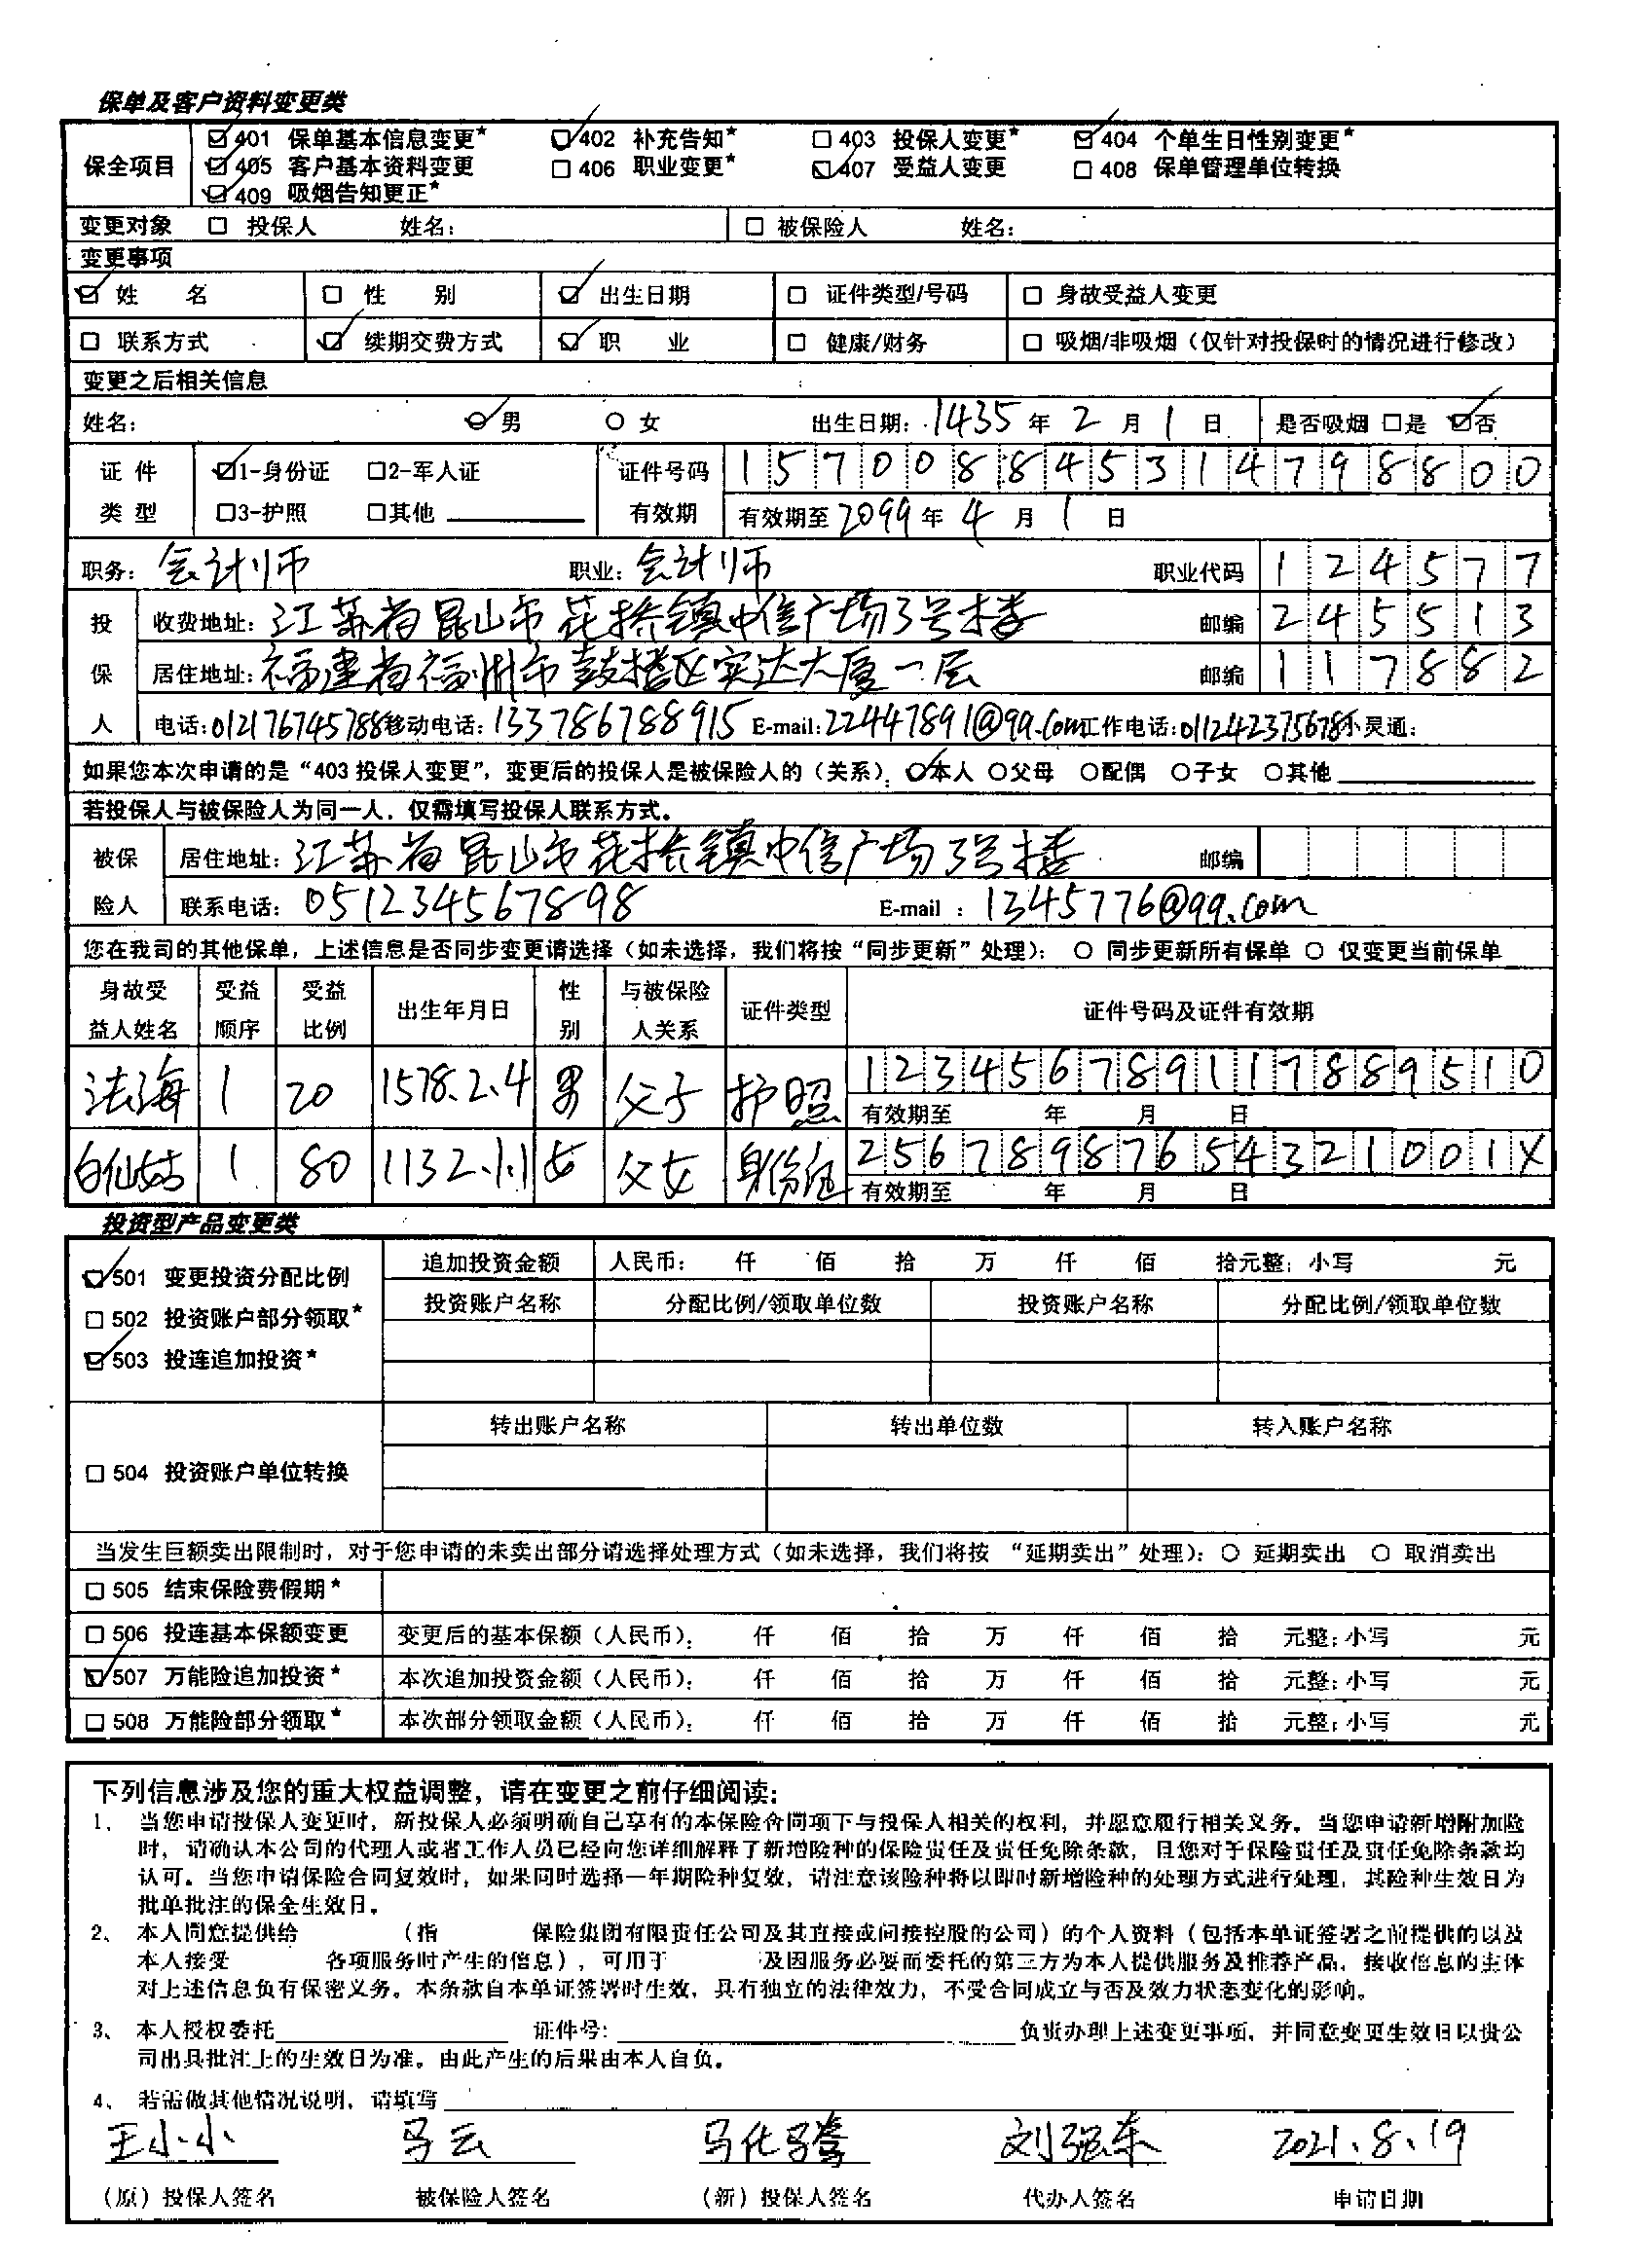 保单及客户资料变更类
保全项目 ☑401 保单基本信息变更* ☑402 补充告知* ☐403 投保人变更* ☑404 个单生日性别变更*
☑405 客户基本资料变更 ☐406 职业变更* ☑407 受益人变更 ☐408 保单管理单位转换
☑409 吸烟告知更正*
变更对象 ☐ 投保人 姓名: ☐ 被保险人 姓名:
变更事项
☑ 姓 名 ☐ 性 别 ☑ 出生日期 ☐ 证件类型/号码 ☐ 身故受益人变更
☐ 联系方式 ☑ 续期交费方式 ☑ 职 业 ☐ 健康/财务 ☐ 吸烟/非吸烟（仅针对投保时的情况进行修改）
变更之后相关信息
姓名: ☑ 男 ○ 女 出生日期: 1435 年 2 月 1 日 是否吸烟 ☐是 ☑否
证件类型 ☑1-身份证 ☐2-军人证 证件号码 157008845314798800
☐3-护照 ☐其他 有效期 有效期至 2099 年 4 月 1 日
职务: 会计师 职业: 会计师 职业代码 124577
投保人 收费地址: 江苏省昆山市花桥镇中信广场3号楼 邮编 245513
居住地址: 福建省福州市鼓楼区实达大厦一层 邮编 117882
电话: 012176745788 移动电话: 133786788915 E-mail: 22447891@qq.com 工作电话: 011242375678 小灵通:
如果您本次申请的是“403 投保人变更”，变更后的投保人是被保险人的（关系）: ☑本人 ○父母 ○配偶 ○子女 ○其他
若投保人与被保险人为同一人，仅需填写投保人联系方式。
被保险人 居住地址: 江苏省昆山市花桥镇中信广场3号楼 邮编
联系电话: 051234567898 E-mail : 1345776@qq.com
您在我司的其他保单，上述信息是否同步变更请选择（如未选择，我们将按“同步更新”处理）: ○ 同步更新所有保单 ○ 仅变更当前保单
身故受益人姓名 受益顺序 受益比例 出生年月日 性别 与被保险人关系 证件类型 证件号码及证件有效期
法海 1 20 1578.2.4 男 父子 护照 123456789117889510
有效期至 年 月 日
白仙姑 1 80 1132.1.1 女 父女 身份证 25678987654321001X
有效期至 年 月 日
投资型产品变更类
☑501 变更投资分配比例 追加投资金额 人民币: 仟 佰 拾 万 仟 佰 拾元整: 小写 元
☐502 投资账户部分领取* 投资账户名称 分配比例/领取单位数 投资账户名称 分配比例/领取单位数
☑503 投连追加投资*
转出账户名称 转出单位数 转入账户名称
☐504 投资账户单位转换
当发生巨额卖出限制时，对于您申请的未卖出部分请选择处理方式（如未选择，我们将按 “延期卖出”处理）: ○ 延期卖出 ○ 取消卖出
☐505 结束保险费假期*
☐506 投连基本保额变更 变更后的基本保额（人民币）: 仟 佰 拾 万 仟 佰 拾 元整: 小写 元
☑507 万能险追加投资* 本次追加投资金额（人民币）: 仟 佰 拾 万 仟 佰 拾 元整: 小写 元
☐508 万能险部分领取* 本次部分领取金额（人民币）: 仟 佰 拾 万 仟 佰 拾 元整: 小写 元
下列信息涉及您的重大权益调整，请在变更之前仔细阅读:
1、当您申请投保人变更时，新投保人必须明确自己享有的本保险合同项下与投保人相关的权利，并愿意履行相关义务。当您申请新增附加险
时，请确认本公司的代理人或者工作人员已经向您详细解释了新增险种的保险责任及责任免除条款，且您对于保险责任及责任免除条款均
认可。当您申请保险合同复效时，如果同时选择一年期险种复效，请注意该险种将以即时新增险种的处理方式进行处理，其险种生效日为
批单批注的保全生效日。
2、本人同意提供给 （指 保险集团有限责任公司及其直接或间接控股的公司）的个人资料（包括本单证签署之前提供的以及
本人接受 各项服务时产生的信息），可用于 及因服务必要而委托的第三方为本人提供服务及推荐产品，接收信息的主体
对上述信息负有保密义务。本条款自本单证签署时生效，具有独立的法律效力，不受合同成立与否及效力状态变化的影响。
3、本人授权委托 证件号: 负责办理上述变更事项，并同意变更生效日以贵公
司出具批注上的生效日为准。由此产生的后果由本人自负。
4、若需做其他情况说明，请填写
王小小 马云 马化腾 刘强东 2021.8.19
（原）投保人签名 被保险人签名 （新）投保人签名 代办人签名 申请日期